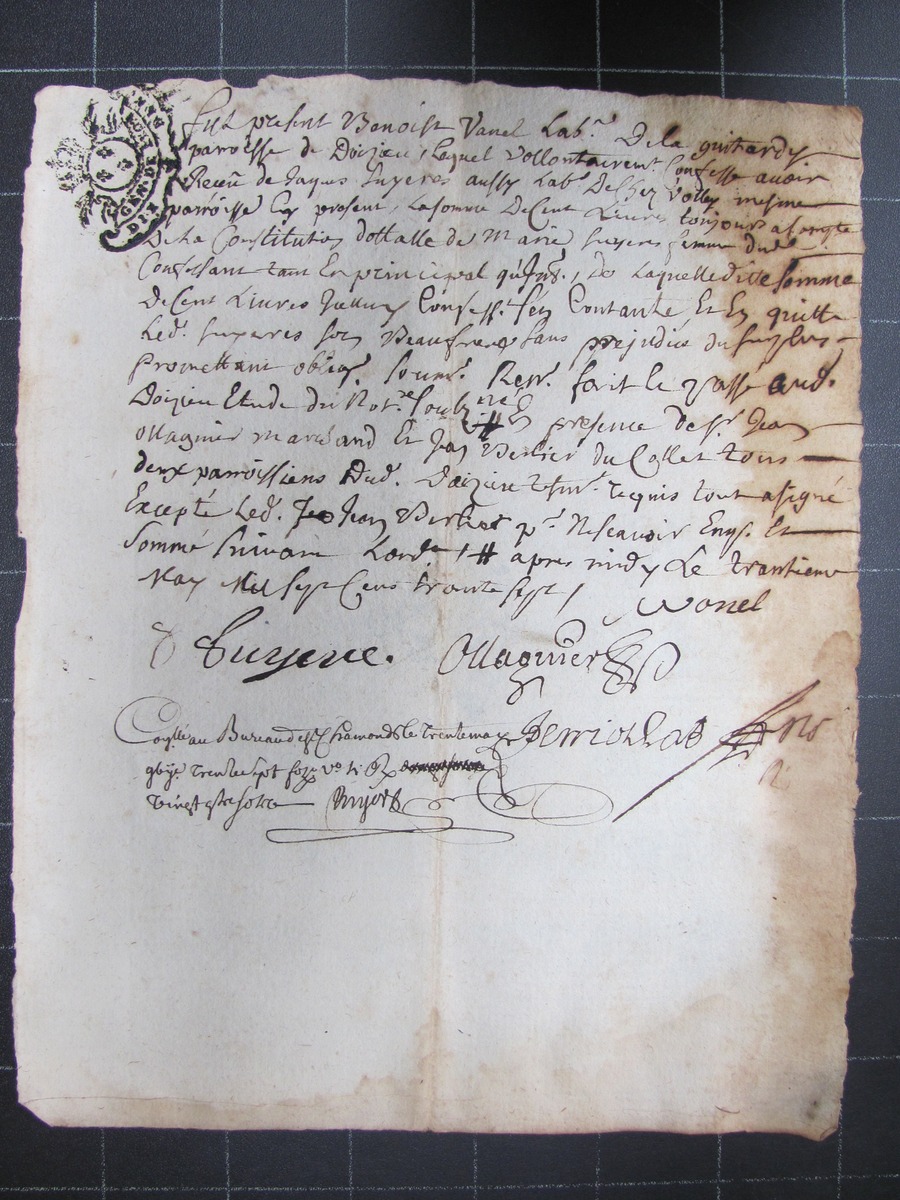 GEN. DE LYON
DIX
fust present Benoist Vanel Lab.r De la guitardy
parroisse de Doizieu, Lequel Vollontairement Confesse avoir
Receu de Jaques Suyeres aussy Lab.r De Chez Volley mesme
parroisse Cy present, La somme De Cent Livres toujours a Compte
De La Constitution dottalle de Marie Suyeres femme dud.
Confessant tant En principal qu'Int., De Laquelle ditte Somme
De Cent Livres Confess. Contante Et En quitte
Led. Suyeres son Beaufrere Sans prejudice du Surplus
Promettant oblig. Soumr. Renr. fait et passé aud.
Doizieu Etude du Not.re Soubz.né En presence de Sr. Jean
Ollagnier marchand Et Jean Verrier du Collet tous
deux parroissiens Dud. Doizieu requis tout a signé
Excepté Led. Jean Verrier pr. Ne scavoir Enqs. Et
Sommé Suivant Lord.ce apres midy Le trantieme
May Mil Sept Cens trante sept /
Vanel
Suyere. Ollagnier
au Bureau de St Chamond Le trente may
trente sept fo vo
vingt quatre sols